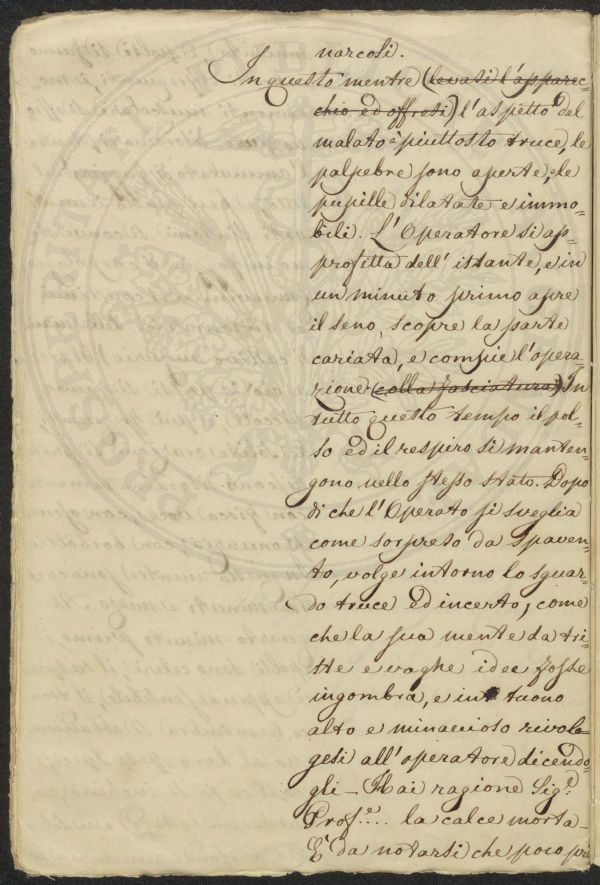 narcosi.
In questo mentre (levasi l'apparec=
chio ed offresi) l'aspetto del
malato è piuttosto truce, le
palpebre sono aperte, le
pupille dilatate e immo=
bili. L'Operatore si ap=
profitta dell' istante, e in
un minuto primo apre
il seno, scopre la parte
cariata, e compie l'opera
zione (colla fasciatura) In
tutto questo tempo il pol=
so ed il respiro si manten=
gono nello stesso stato. Dopo
di che l'Operato si sveglia
come sorpreso da spaven=
to, volge intorno lo sguar=
do truce ed incerto, come
che la sua mente da tri=
ste e vaghe idee fosse
ingombra, e in tuono
alto e minaccioso rivol=
gesi all'operatore dicendo=
gli - Hai ragione Sig.r
Prof.r... la calce morta -
E' da notarsi che poco pri